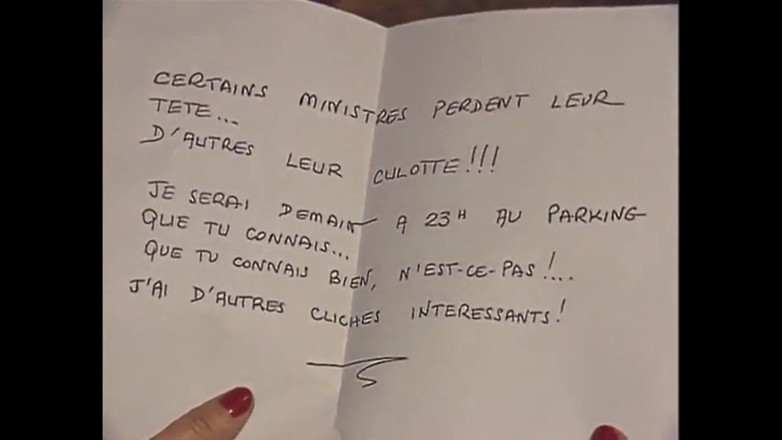 CERTAINS MINISTRES PERDENT LEUR
TETE...
D'AUTRES LEUR CULOTTE!!!
JE SERAI DEMAIN A 23H AU PARKING
QUE TU CONNAIS...
QUE TU CONNAIS BIEN, N'EST-CE-PAS!...
J'AI D'AUTRES CLICHES INTERESSANTS!